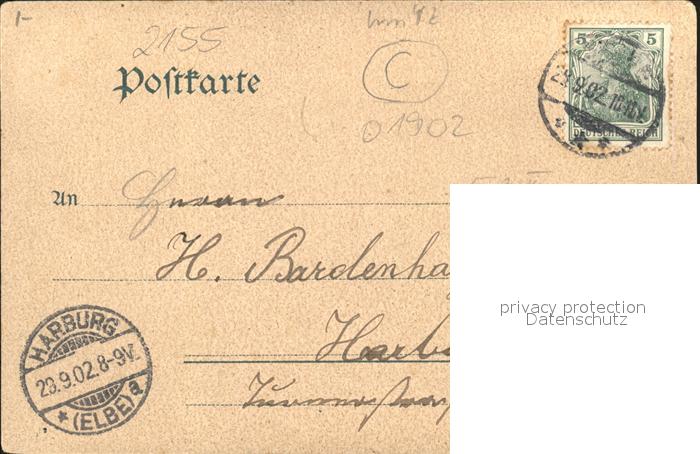 2155
C
01902
Postkarte
5 5
DEUTSCHES REICH
.9.02
An
Herrn
H. Bardenha
Harb
HARBURG
9.02.8-9V.
* (ELBE) a
privacy protection
Datenschutz